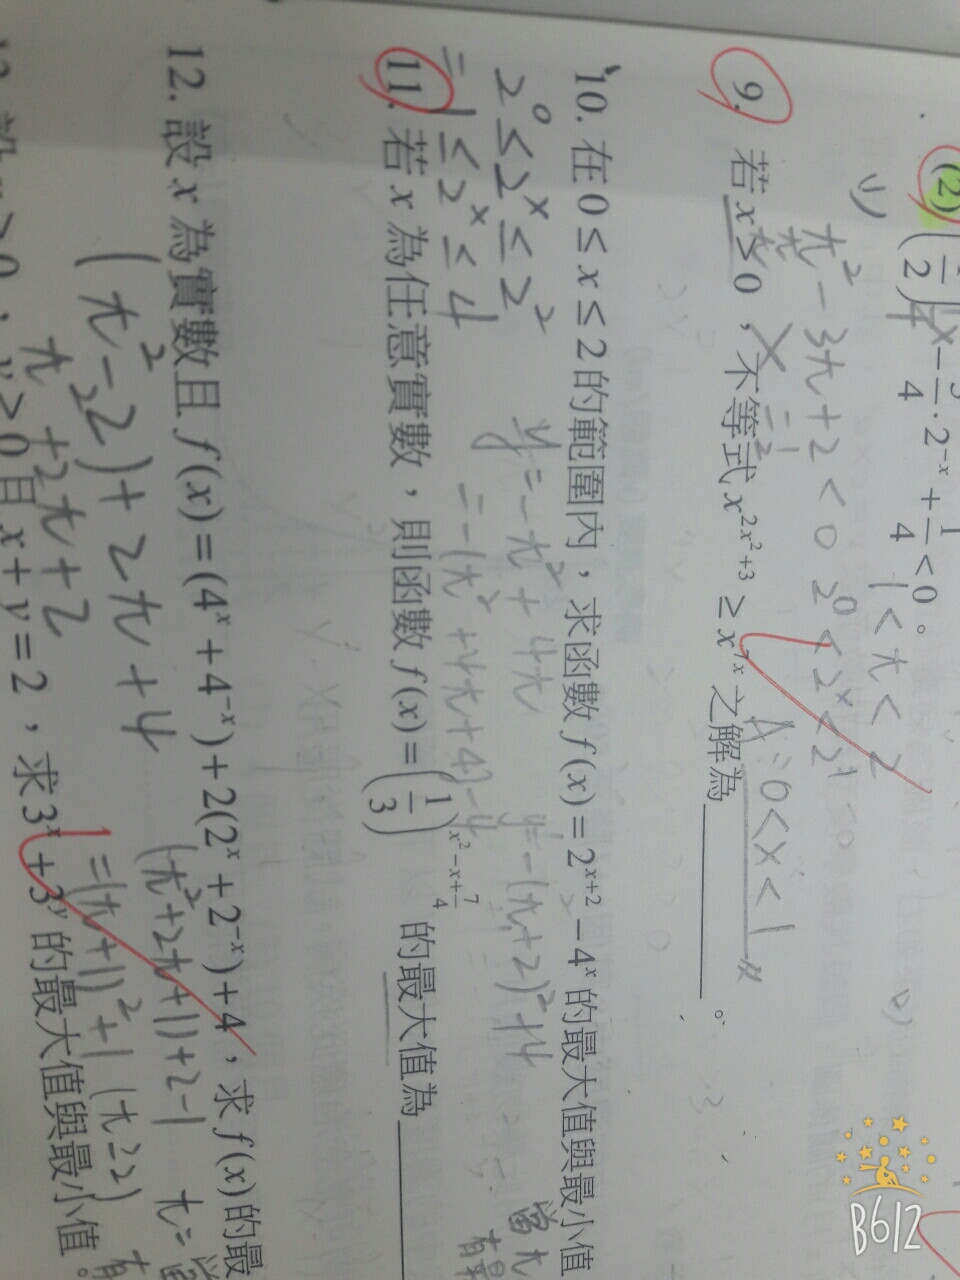 (2)
x - 3/4 · 2^{-x} + 1/4 < 0。
1 < t < 2
(1) t² - 3t + 2 < 0 2⁰ < 2ˣ < 2¹
A: 0 < x < 1
9. 若 x > 0，不等式 x^{2x²+3} ≥ x^{7x} 之解為________。
10. 在 0 ≤ x ≤ 2 的範圍內，求函數 f(x) = 2^{x+2} - 4ˣ 的最大值與最小值
2⁰ ≤ 2ˣ ≤ 2² y = -t² + 4t y = -(t-2)² + 4
= 1 ≤ 2ˣ ≤ 4
11. 若 x 為任意實數，則函數 f(x) = (1/3)^{x²-x+7/4} 的最大值為________
12. 設 x 為實數且 f(x) = (4ˣ + 4⁻ˣ) + 2(2ˣ + 2⁻ˣ) + 4，求 f(x) 的最
(t² - 2) + 2t + 4 (t² + 2t + 1) + 2 - 1 t =
t² + 2t + 2 = (t+1)² + 1 (t ≥ 2)
≥ 0 且 x + y = 2，求 3ˣ + 3ʸ 的最大值與最小值。
B612